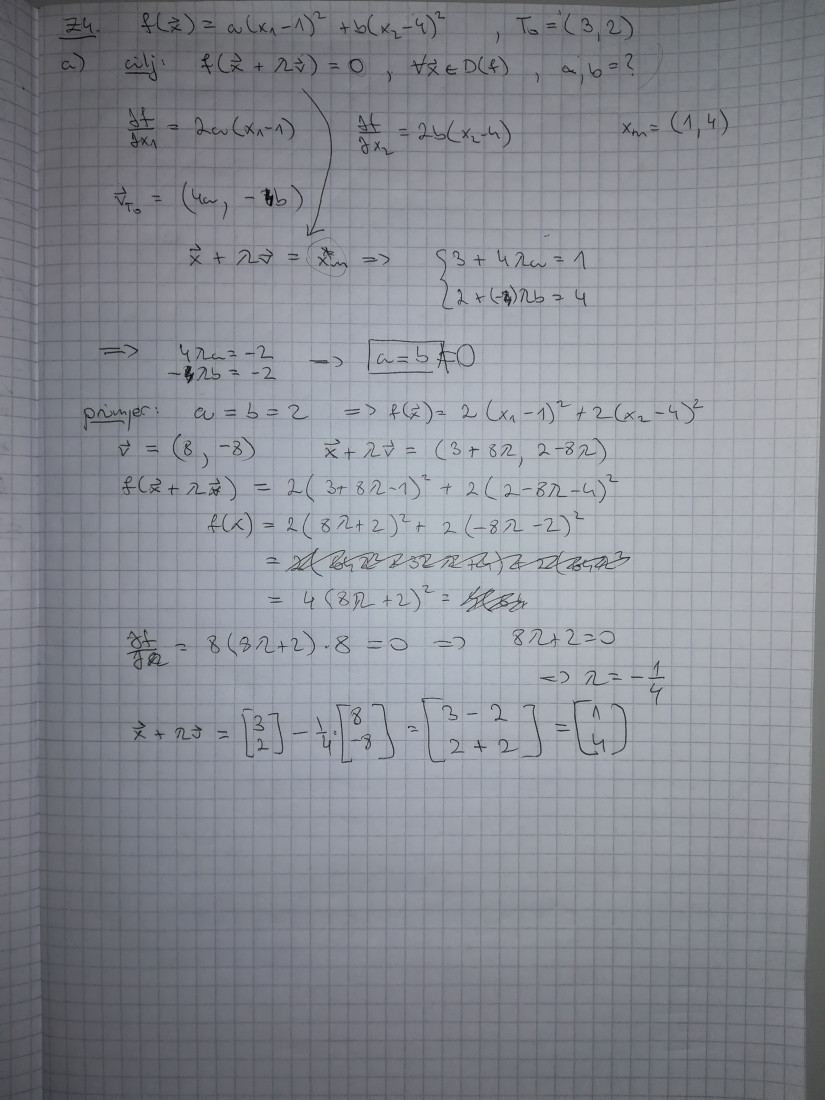 Z4. f(x⃗) = a(x₁-1)² + b(x₂-4)² , T₀ = (3, 2)
a) cilj: f(x⃗ + λv⃗) = 0 , ∀x⃗ ∈ D(f) , a, b = ?
∂f/∂x₁ = 2a(x₁-1) ∂f/∂x₂ = 2b(x₂-4) xₘ = (1, 4)
v⃗_T₀ = (4a, -4b)
x⃗ + λv⃗ = x⃗ₘ => { 3 + 4λa = 1
2 + (-4)λb = 4
=> 4λa = -2 => a = b ≠ 0
-4λb = -2
primjer: a = b = 2 => f(x⃗) = 2(x₁-1)² + 2(x₂-4)²
v⃗ = (8, -8) x⃗ + λv⃗ = (3 + 8λ, 2-8λ)
f(x⃗ + λx⃗) = 2(3+8λ-1)² + 2(2-8λ-4)²
f(x) = 2(8λ+2)² + 2(-8λ-2)²
=
= 4(8λ+2)² =
∂f/∂λ = 8(8λ+2)·8 = 0 => 8λ+2=0
=> λ = -1/4
x⃗ + λv⃗ = [3 2] - 1/4·[8 -8] = [3-2 2+2] = [1 4]